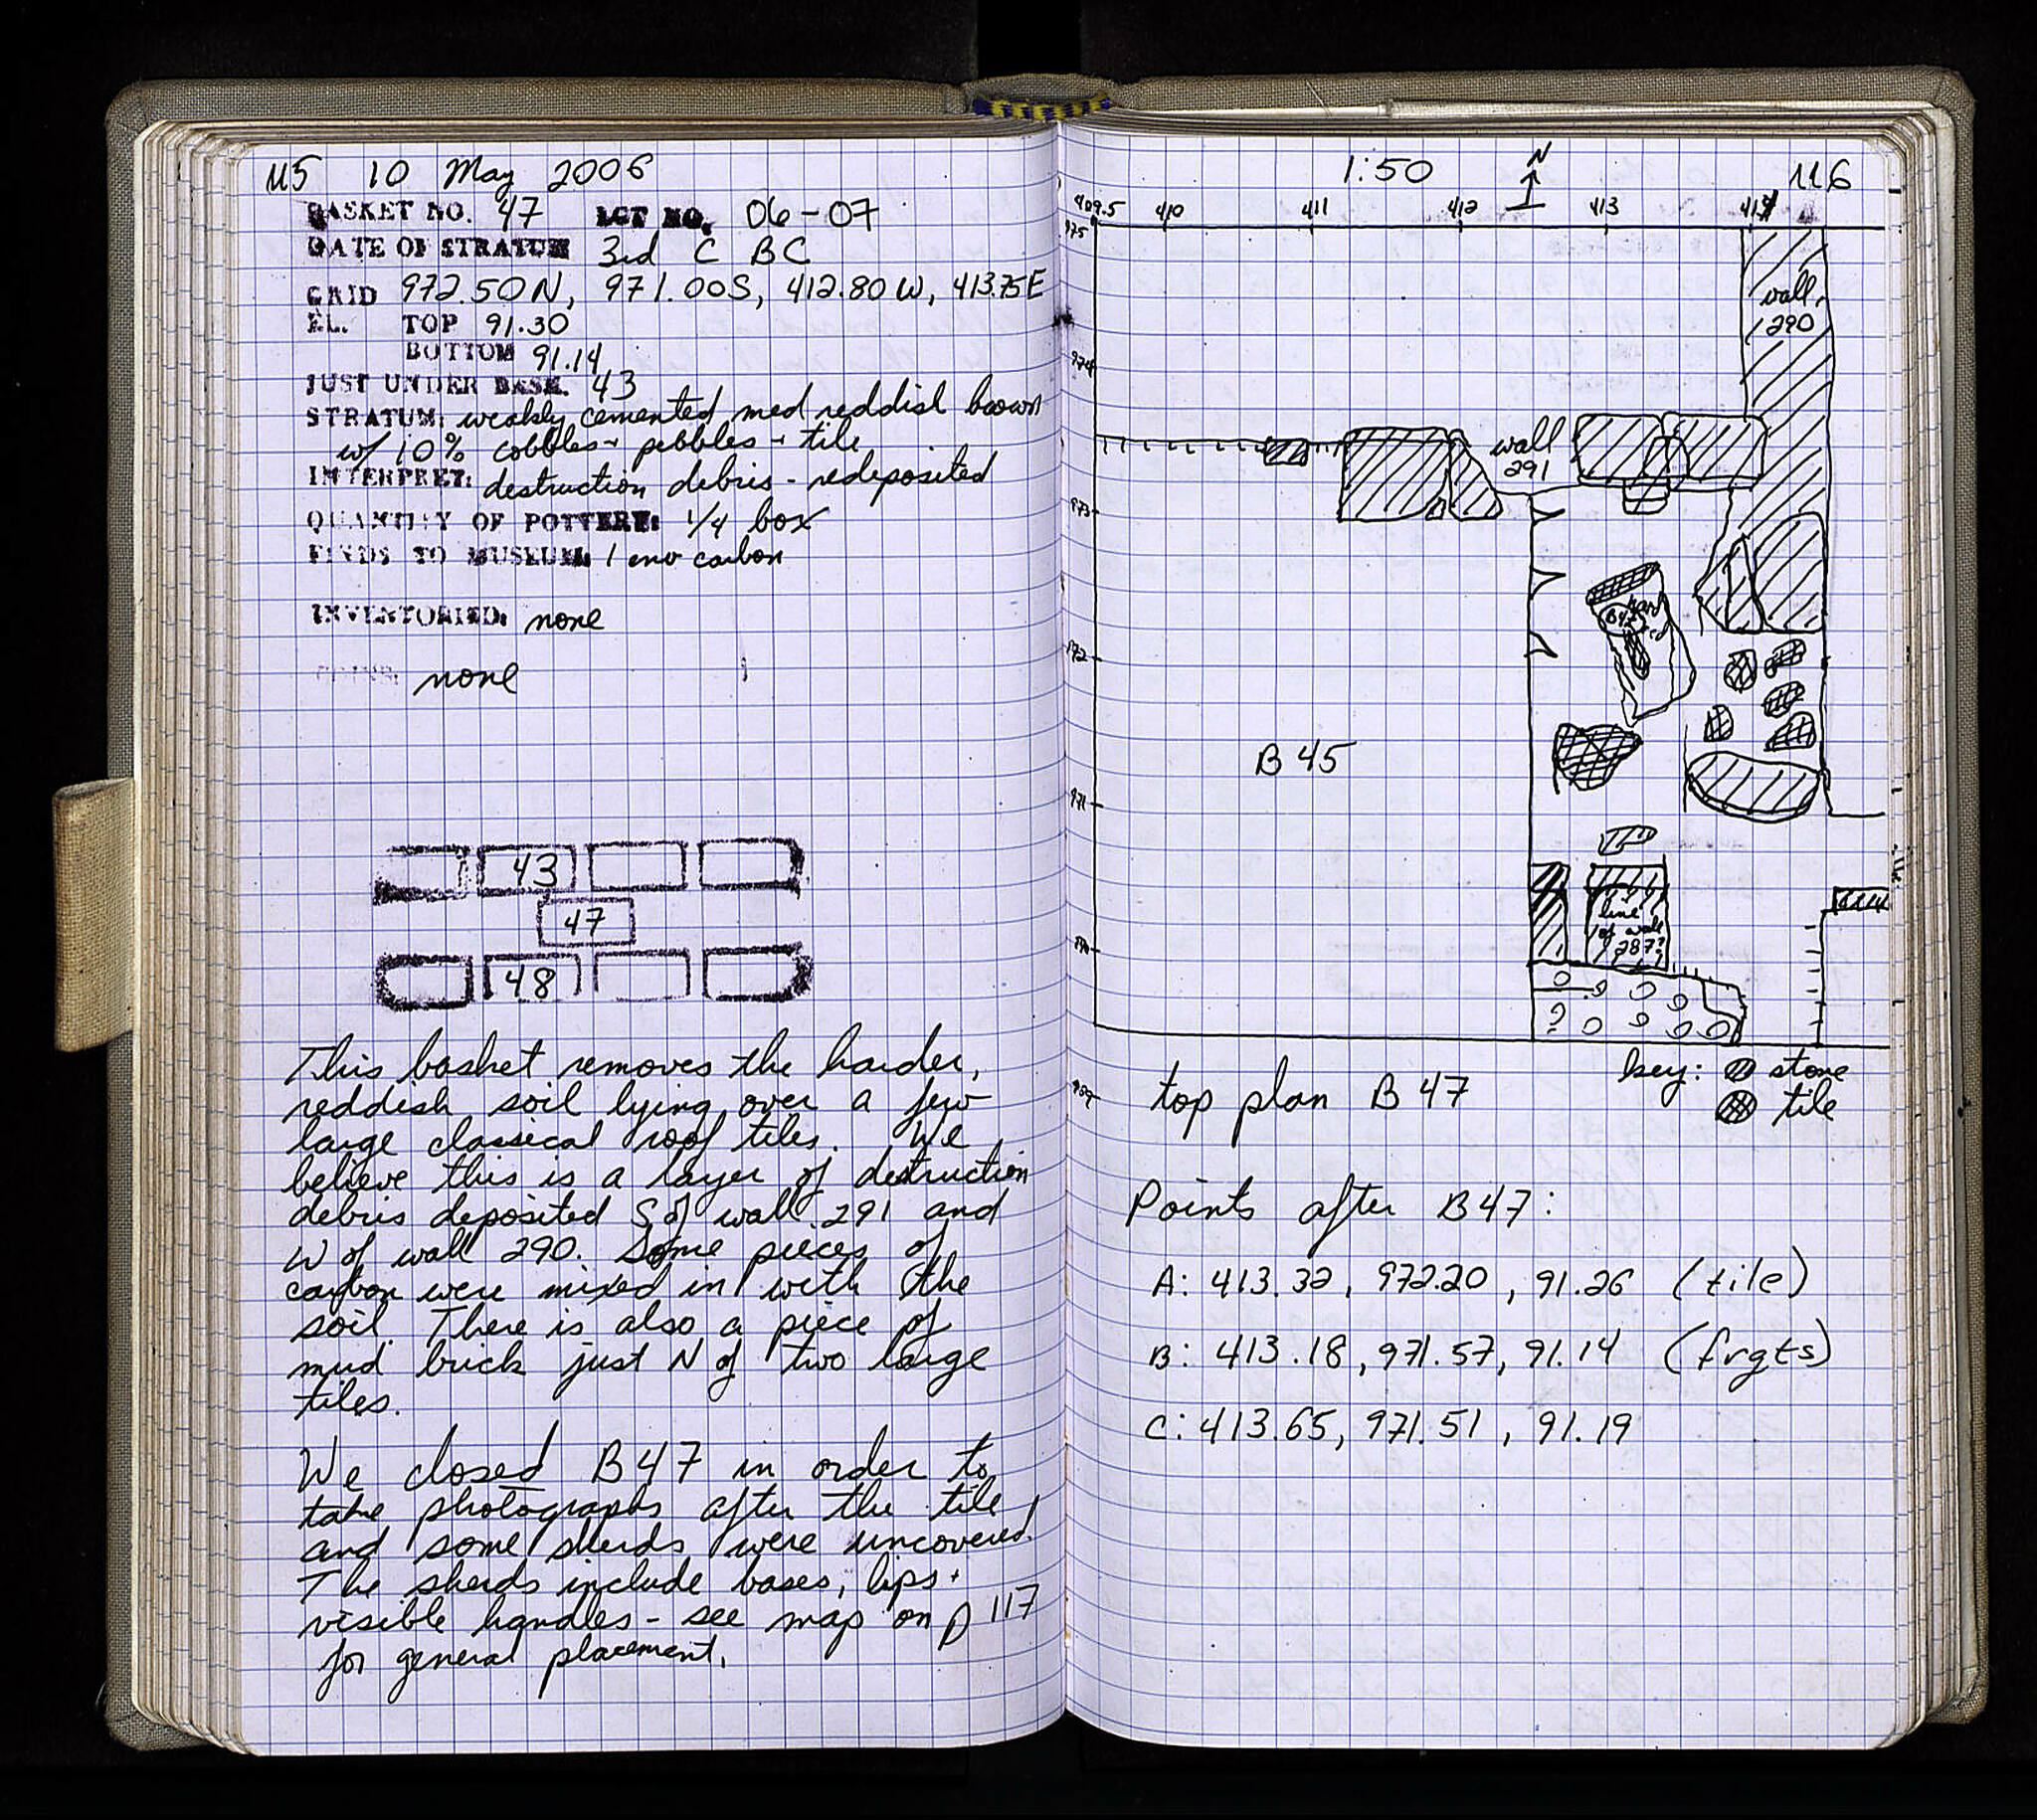 115 10 May 2006
BASKET NO. 47 LOT NO. 06-07
DATE OF STRATUM 3rd C BC
GRID 972.50N, 971.00S, 412.80W, 413.75E
EL. TOP 91.30
BOTTOM 91.14
JUST UNDER BASK. 43
STRATUM: weakly cemented med reddish brown
w/ 10% cobbles + pebbles + tile
INTERPRET: destruction debris - redeposited
QUANTITY OF POTTERY: 1/4 box
FINDS TO MUSEUM: 1 env carbon
INVENTORIED: none
COINS: none
43
47
48
This basket removes the harder,
reddish soil lying over a few
large classical roof tiles. We
believe this is a layer of destruction
debris deposited S of wall 291 and
W of wall 290. Some pieces of
carbon were mixed in with the
soil. There is also a piece of
mud brick just N of two large
tiles.
We closed B47 in order to
take photographs after the tile
and some sherds were uncovered.
The sherds include bases, lips +
visible handles - see map on p 117
for general placement.
1:50 N 116
409.5 410 411 412 413 414
975
974
973
972
971
970
969
wall
290
wall
291
B 45
line
of wall
287?
key: stone
tile
top plan B 47
Points after B47:
A: 413.32, 972.20, 91.26 (tile)
B: 413.18, 971.57, 91.14 (frgts)
C: 413.65, 971.51, 91.19